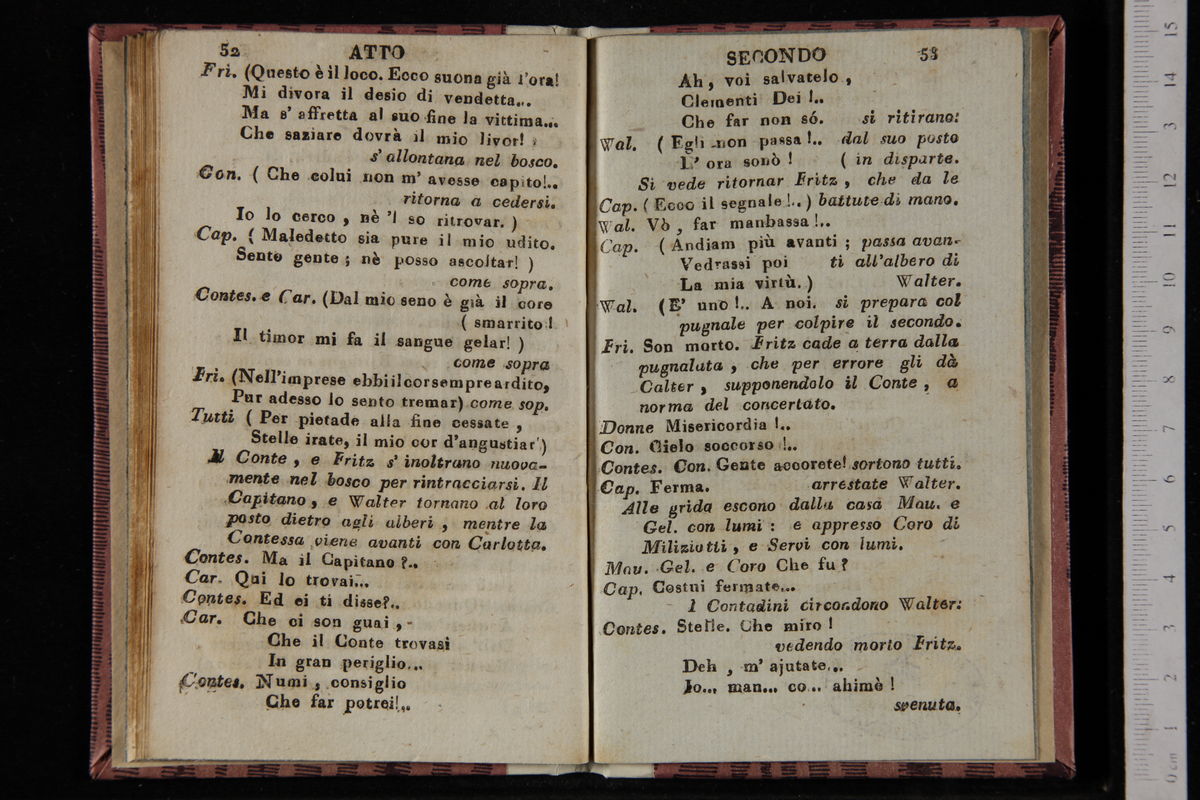 52 ATTO
Fri. (Questo è il loco. Ecco suona già l'ora!
Mi divora il desio di vendetta...
Ma s' affretta al suo fine la vittima...
Che saziare dovrà il mio livor!
s' allontana nel bosco.
Con. ( Che colui non m' avesse capito!..
ritorna a cedersi.
Io lo cerco , nè 'l so ritrovar. )
Cap. ( Maledetto sia pure il mio udito.
Sento gente ; nè posso ascoltar! )
come sopra.
Contes. e Car. (Dal mio seno è già il core
( smarrito !
Il timor mi fa il sangue gelar! )
come sopra
Fri. (Nell'imprese ebbi il cor sempre ardito,
Pur adesso lo sento tremar) come sop.
Tutti ( Per pietade alla fine cessate ,
Stelle irate, il mio cor d'angustiar!)
Il Conte , e Fritz s' inoltrano nuova-
mente nel bosco per rintracciarsi. Il
Capitano , e Walter tornano al loro
posto dietro agli alberi , mentre la
Contessa viene avanti con Carlotta.
Contes. Ma il Capitano ?..
Car. Qui lo trovai...
Contes. Ed ei ti disse?..
Car. Che ci son guai ,
Che il Conte trovasi
In gran periglio...
Contes. Numi , consiglio
Che far potrei!..
SECONDO 53
Ah , voi salvatelo ,
Clementi Dei !..
Che far non só. si ritirano:
Wal. ( Egli non passa !.. dal suo posto
L' ora sonò ! ( in disparte.
Si vede ritornar Fritz , che da le
Cap. ( Ecco il segnale !.. ) battute di mano.
Wal. Vò , far manbassa !..
Cap. ( Andiam più avanti ; passa avan-
Vedrassi poi ti all'albero di
La mia virtù. ) Walter.
Wal. ( E' uno !.. A noi. si prepara col
pugnale per colpire il secondo.
Fri. Son morto. Fritz cade a terra dalla
pugnalata , che per errore gli dà
Calter , supponendolo il Conte , a
norma del concertato.
Donne Misericordia !..
Con. Cielo soccorso !..
Contes. Con. Gente accorete! sortono tutti.
Cap. Ferma. arrestate Walter.
Alle grida escono dalla casa Mau. e
Gel. con lumi : e appresso Coro di
Miliziotti , e Servi con lumi.
Mau. Gel. e Coro Che fu ?
Cap. Costui fermate...
I Contadini circondono Walter:
Contes. Stelle. Che miro !
vedendo morto Fritz.
Deh , m' ajutate...
Io... man... co... ahimè !
svenuta.
15
14
13
12
11
10
9
8
7
6
5
4
3
2
1
0 cm